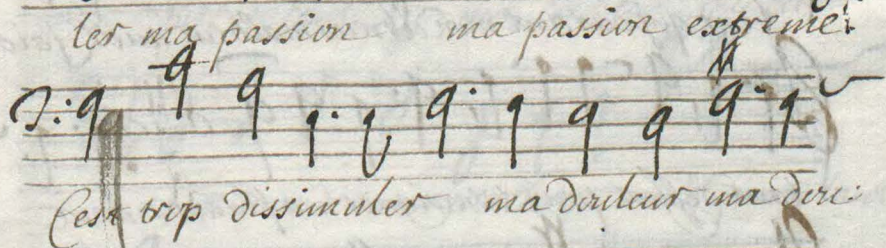 ler ma passion ma passion extreme.
C'est trop dissimuler ma douleur ma dou: